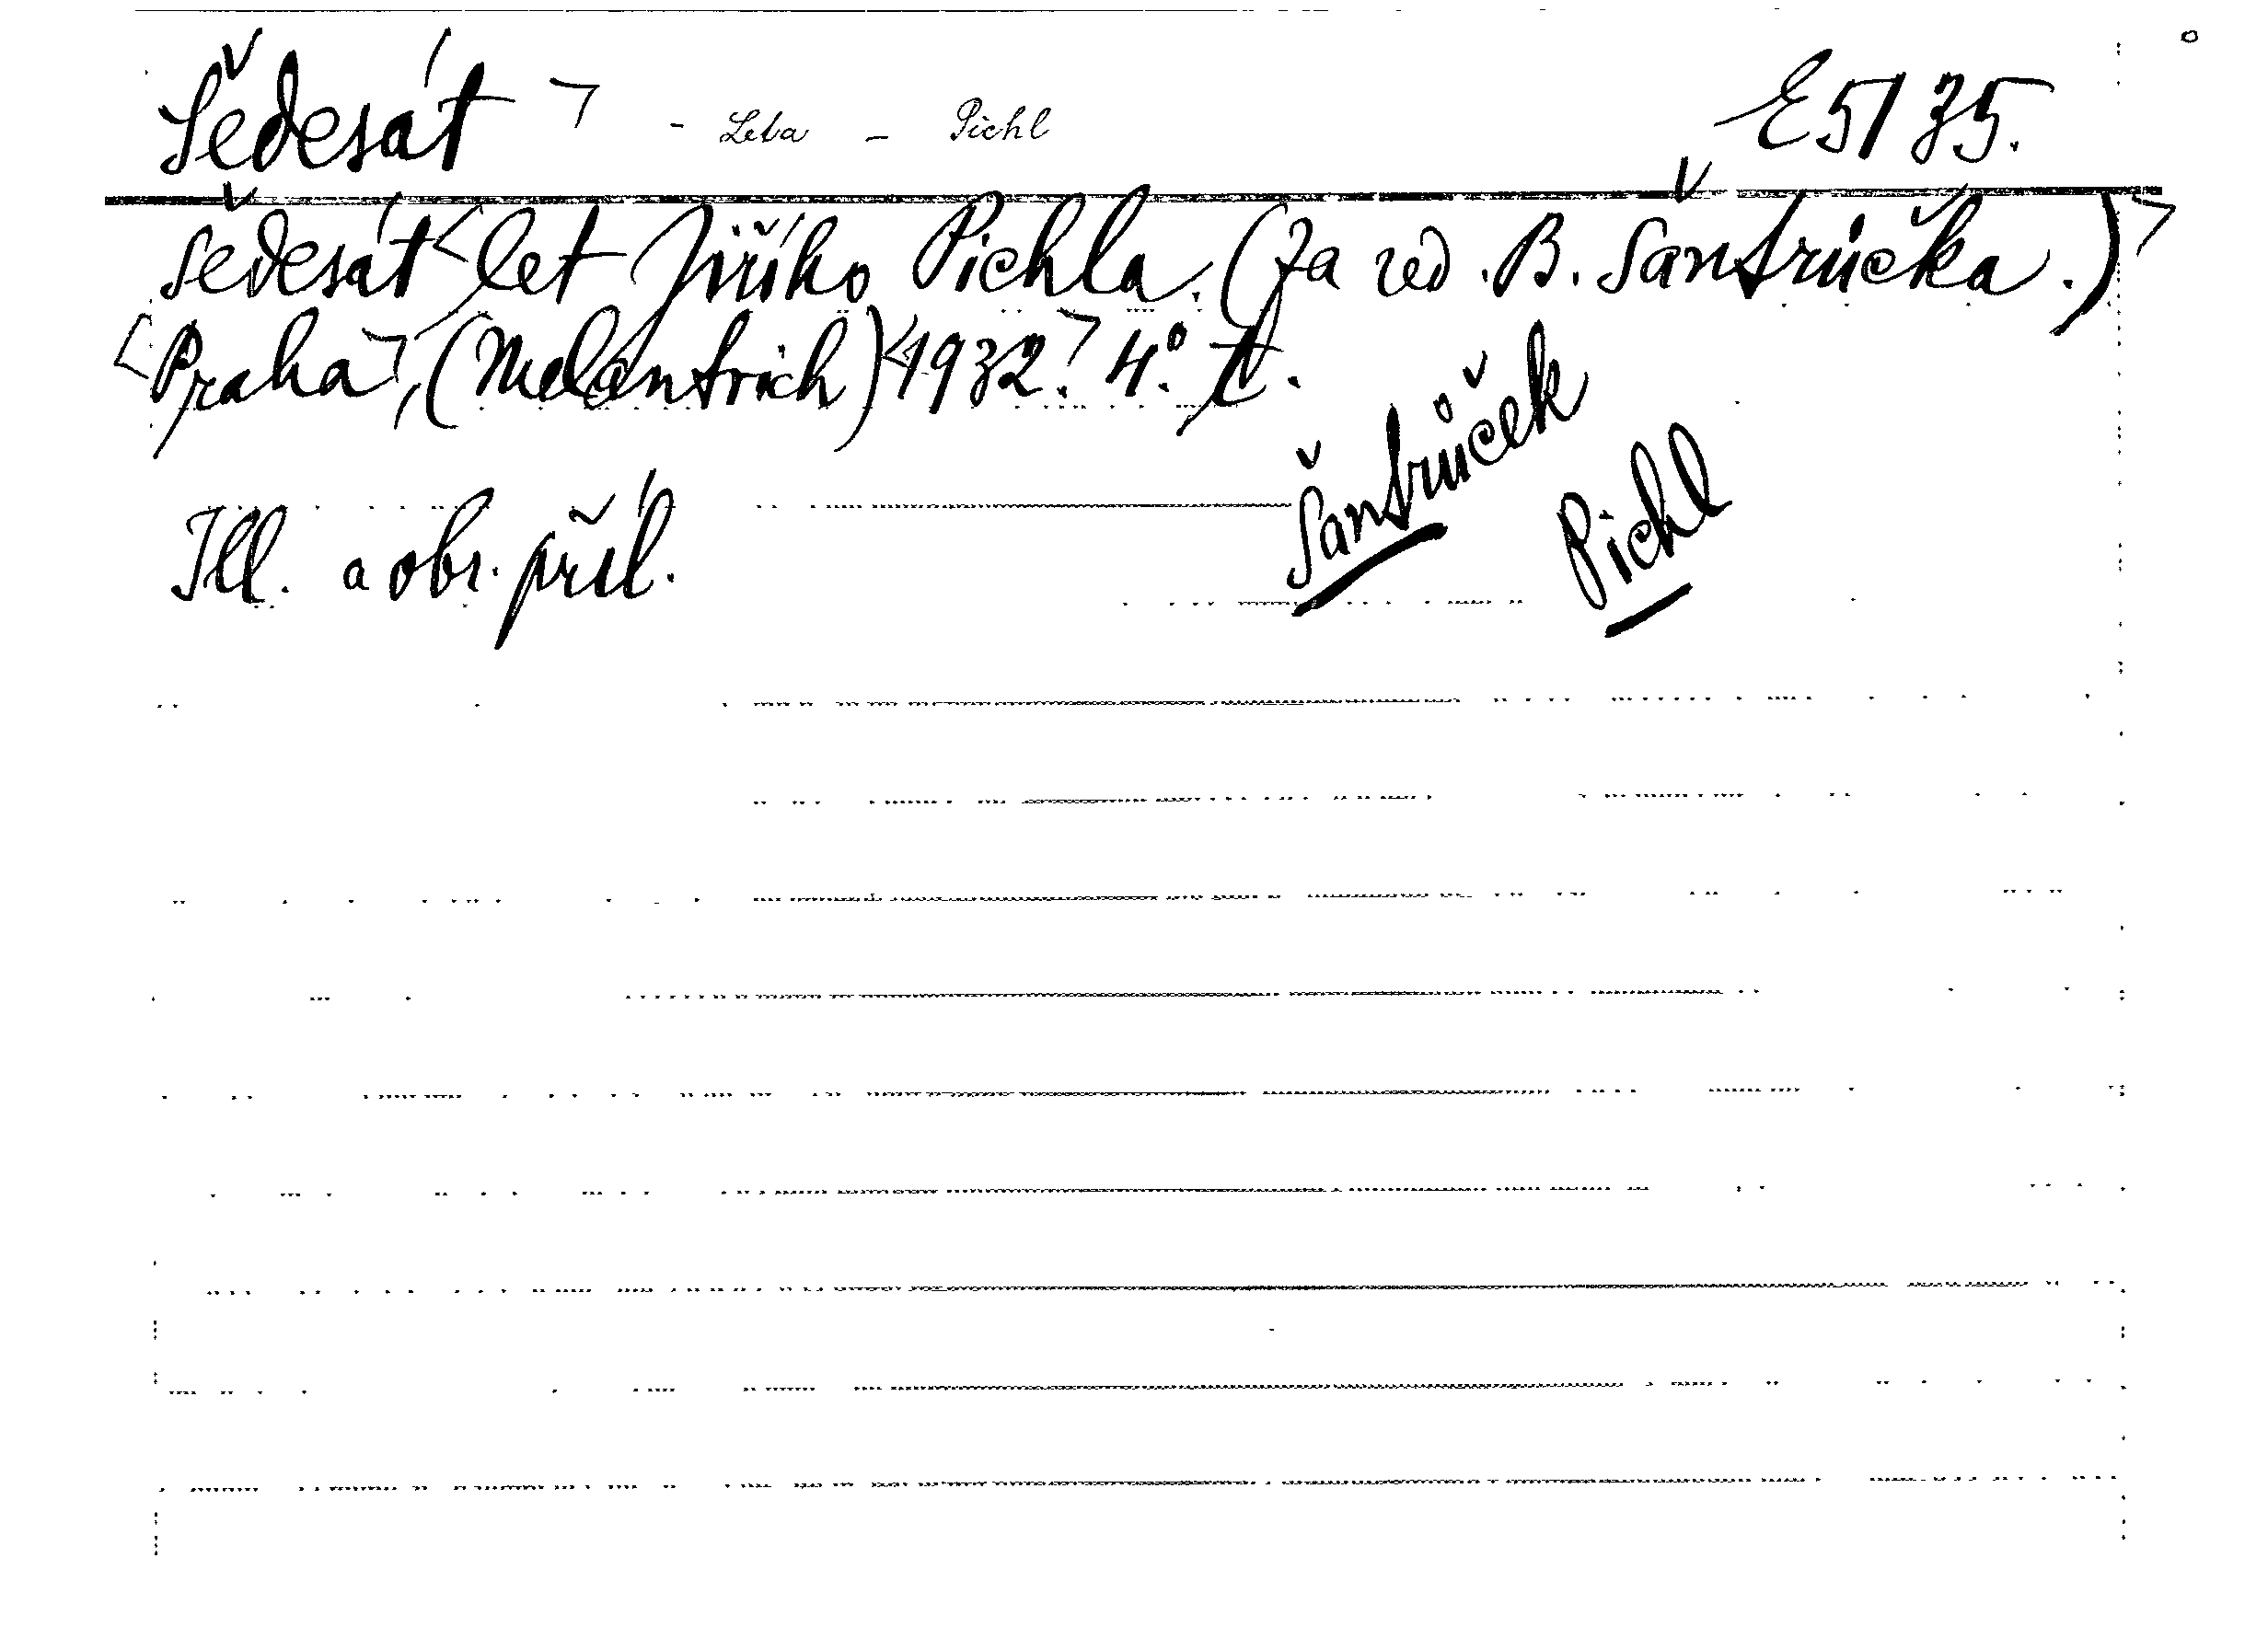 Šedesát - Leta - Pichl E 51 35.
Šedesát let Jiřího Pichla. (Za red. B. Šantrůčka.)
Praha, (Melantrich) 1932. 4°.
Ill. a obr. příl.
Šantrůček
Pichl